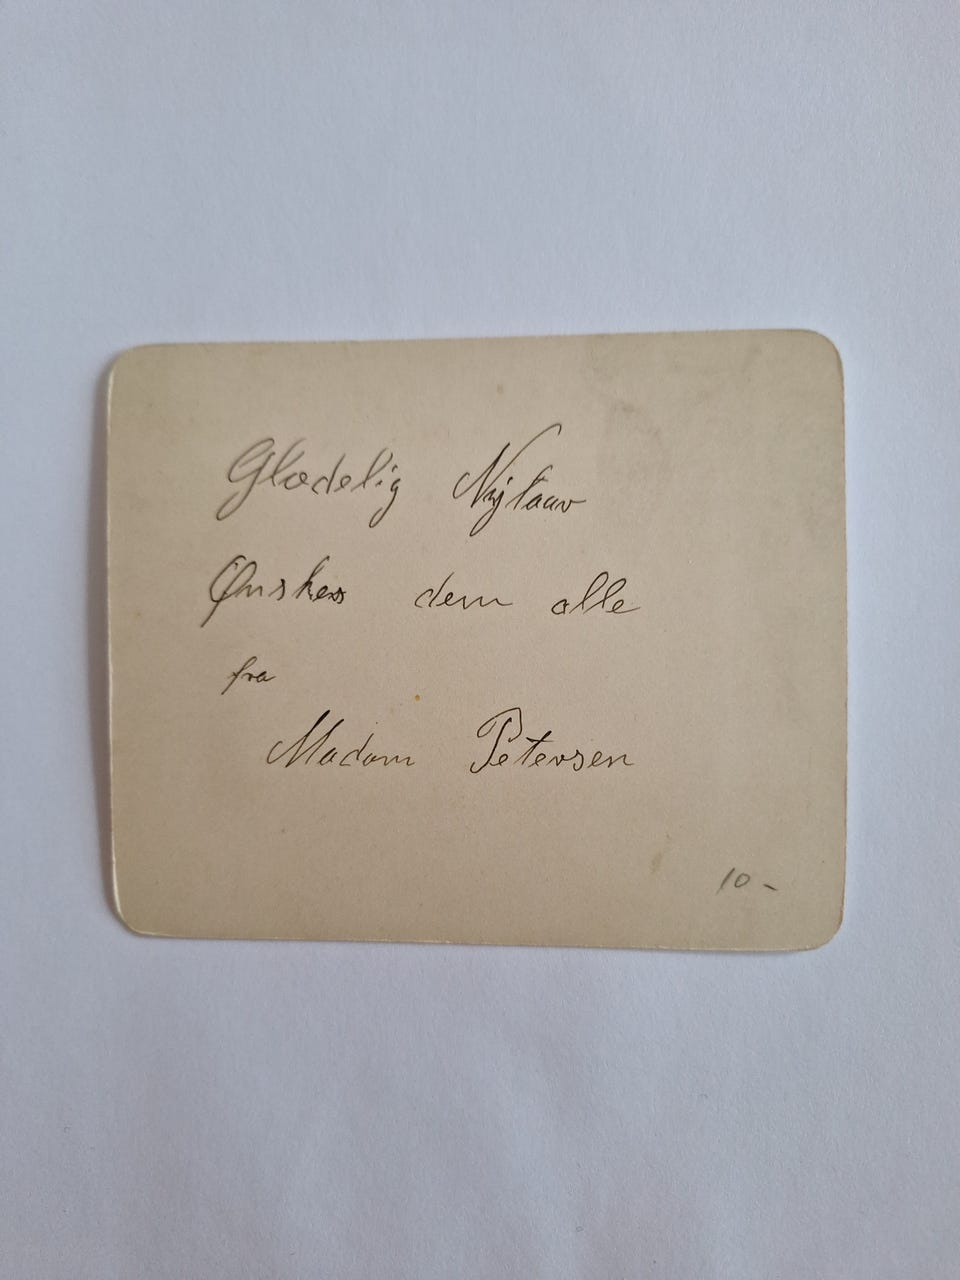 Glædelig Nytaar
Ønskes dem alle
fra
Madam Petersen
10 -